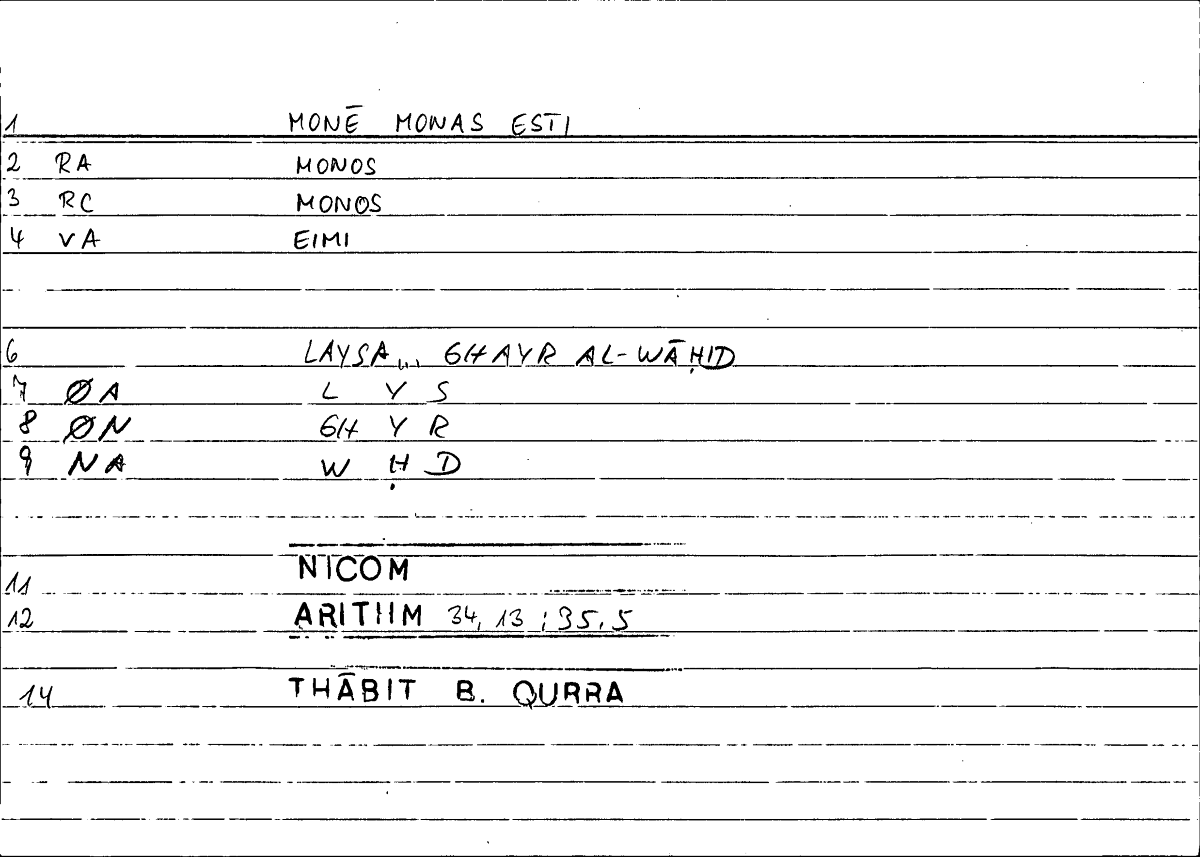 1 MONĒ MONAS ESTI
2 RA MONOS
3 RC MONOS
4 VA EIMI
6 LAYSA... GHAYR AL-WĀḤID
7 ØA L Y S
8 ØN GH Y R
9 NA W Ḥ D
11 NICOM
12 ARITHM 34, 13 ; 35, 5
14 THĀBIT B. QURRA